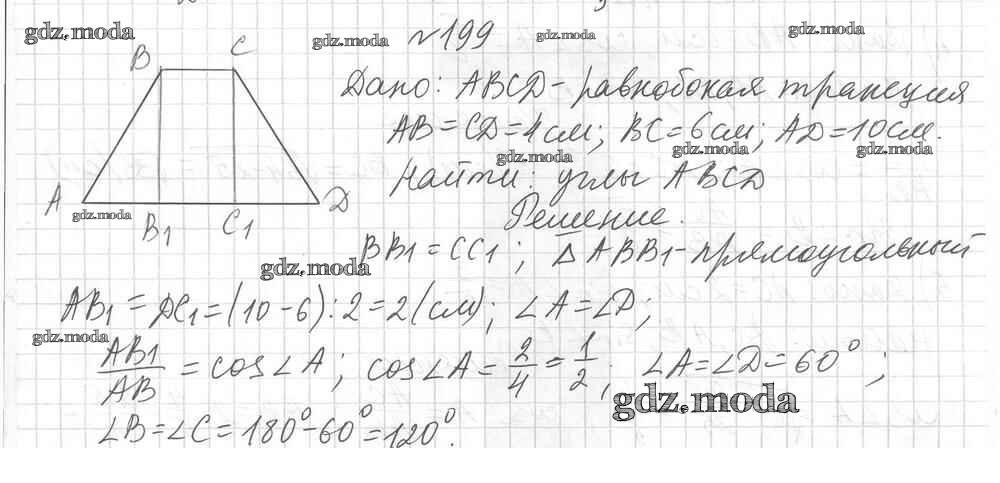 gdz.moda
gdz.moda
№199
gdz.moda
gdz.moda
B C
Дано: ABCD - равнобокая трапеция
AB = CD = 4 см; BC = 6 см; AD = 10 см.
gdz.moda
gdz.moda
gdz.moda
Найти: углы ABCD
A D
gdz.moda
B1 C1
Решение.
BB1 = CC1; Δ ABB1 - прямоугольный
gdz.moda
AB1 = DC1 = (10 - 6) : 2 = 2 (см); ∠A = ∠D;
gdz.moda
AB1/AB = cos∠A; cos∠A = 2/4 = 1/2; ∠A = ∠D = 60°;
gdz.moda
∠B = ∠C = 180° - 60° = 120°.